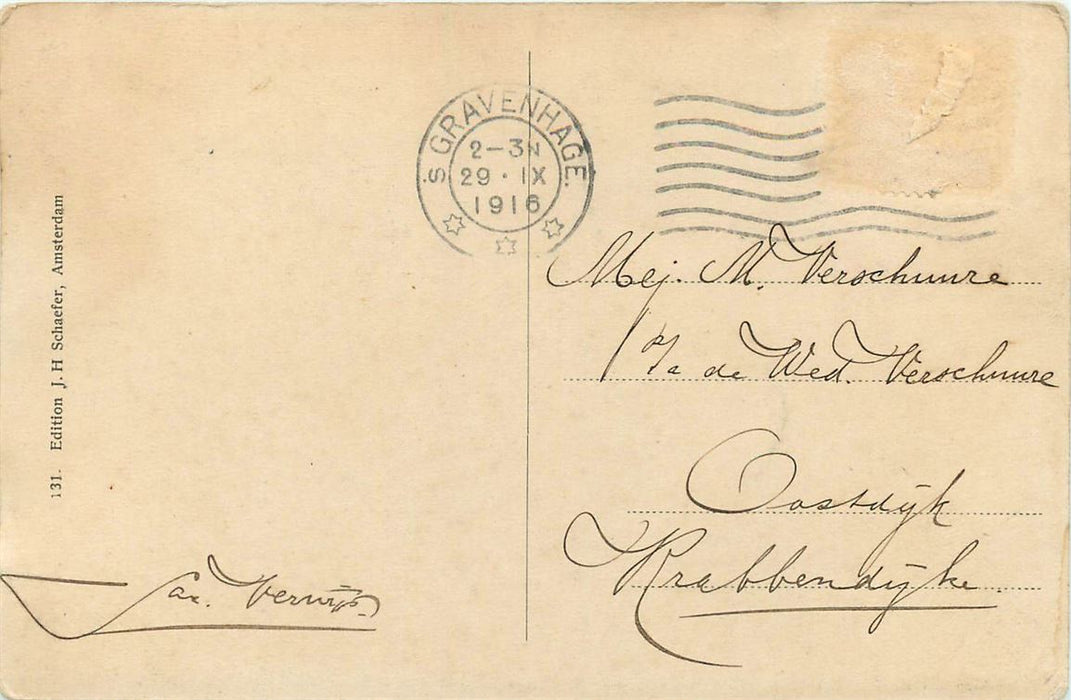 131. Edition J. H Schaefer, Amsterdam
'S GRAVENHAGE.
2-3N
29 · IX
1916
Mej. M. Verschuure
p/a de Wed. Verschuure
Oostdijk
Krabbendijke.
Jac.